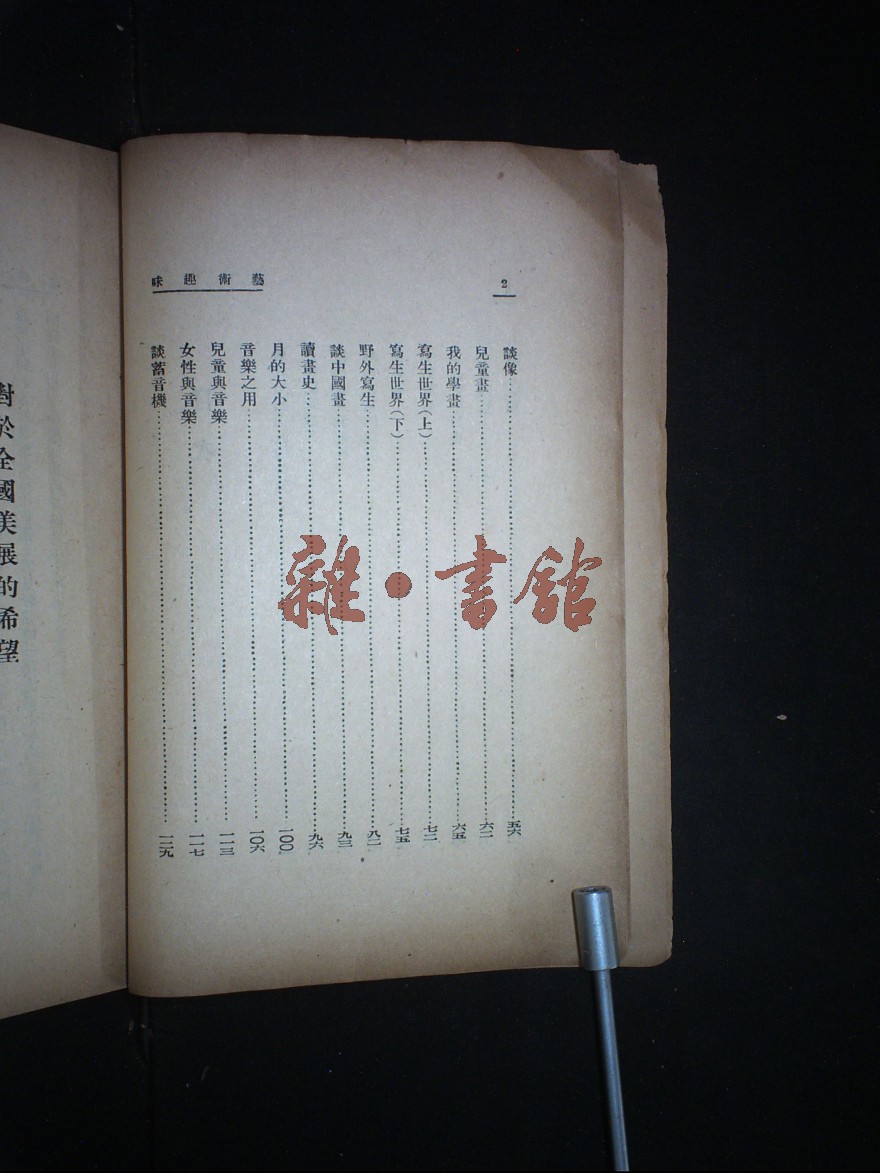 2
藝術趣味
談像……五六
兒童畫……六二
我的學畫……六五
寫生世界(上)……七二
寫生世界(下)……七五
野外寫生……八二
談中國畫……九三
讀畫史……九六
月的大小……一〇〇
音樂之用……一〇六
兒童與音樂……一一三
女性與音樂……一一七
談蓄音機……一二九
對於全國美展的希望
雜·書館